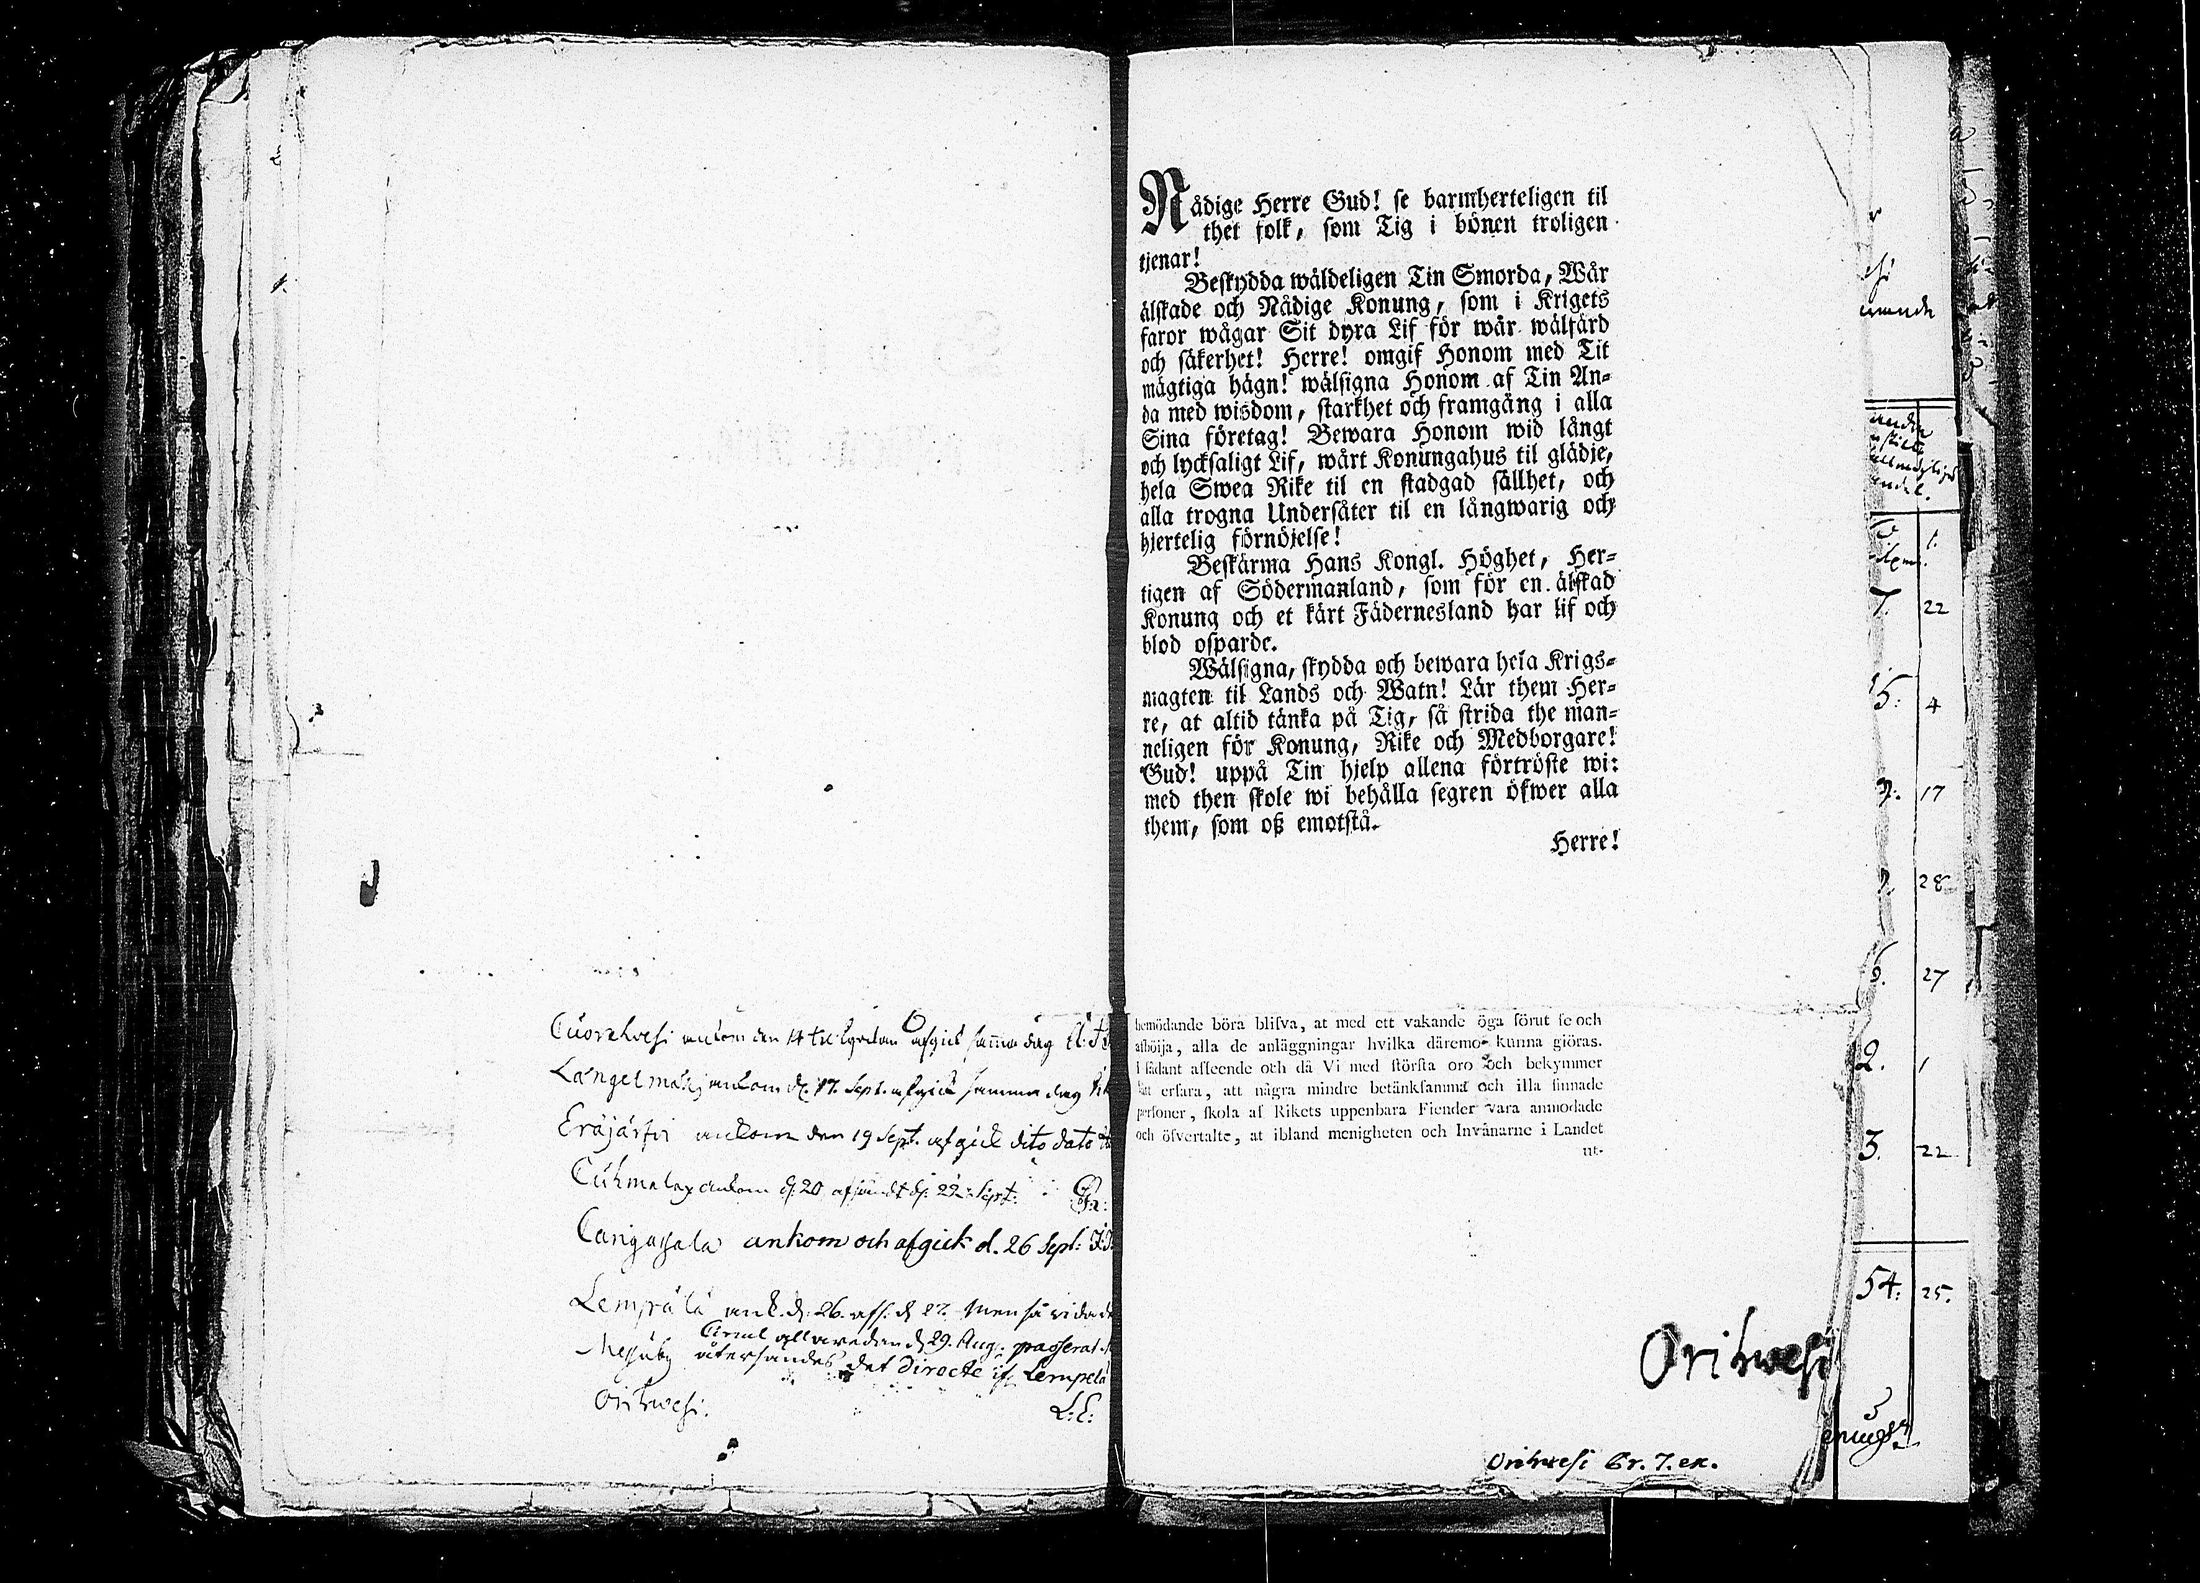 Cuorehvesi ankom den 14 til qvellen afgick samma dag
Längelmäki ankom d. 17. Sept. afgick samma dag
Eräjärfvi ankom den 19 Sept. afgick dito dato
Cuhmalax ankom d: 20 afsändt d: 22 Sept:
Cangasala ankom och afgick d. 26 Sept:
Lempälä ank. d: 26. aff. d 27. Men så vida
allaredan d 29. Aug: passerat
Messuby återsändes det directe if. Lempelä
Orihwesi.
L: E:
Nådige Herre Gud! se barmherteligen til
thet folk, som Tig i bönen troligen
tjenar!
Beskydda wäldeligen Tin Smorda, Wår
älskade och Nådige Konung, som i Krigets
faror wågar Sit dyra Lif för wår wälfärd
och säkerhet! Herre! omgif Honom med Tit
mägtiga hägn! wälsigna Honom af Tin An-
da med wisdom, starkhet och framgång i alla
Sina företag! Bewara Honom wid långt
och lycksaligt Lif, wårt Konungahus til glädje,
hela Swea Rike til en stadgad sällhet, och
alla trogna Undersåter til en långwarig och
hjertelig förnöjelse!
Beskärma Hans Kongl. Höghet, Her-
tigen af Södermanland, som för en älskad
Konung och et kärt Fädernesland har lif och
blod osparde.
Wälsigna, skydda och bewara hela Krigs-
magten til Lands och Watn! Lär them Her-
re, at altid tänka på Tig, så strida the man-
neligen för Konung, Rike och Medborgare!
Gud! uppå Tin hjelp allena förtröste wi:
med then skole wi behålla segren öfwer alla
them, som oß emotstå.
Herre!
bemödande böra blifva, at med ett vakande öga förut se och
afböija, alla de anläggningar hvilka däremot kunna giöras.
I sådant afseende och då Vi med största oro och bekymmer
fått erfara, att några mindre betänksamma och illa sinnade
personer, skola af Rikets uppenbara Fiender vara anmodade
och öfvertalte, at ibland menigheten och Invånarne i Landet
ut-
Orihwesi
Orihwesi Br. 7. ex.
1.
7. 22
15. 4
17
28
6. 27
2. 1
3. 22
54: 25.